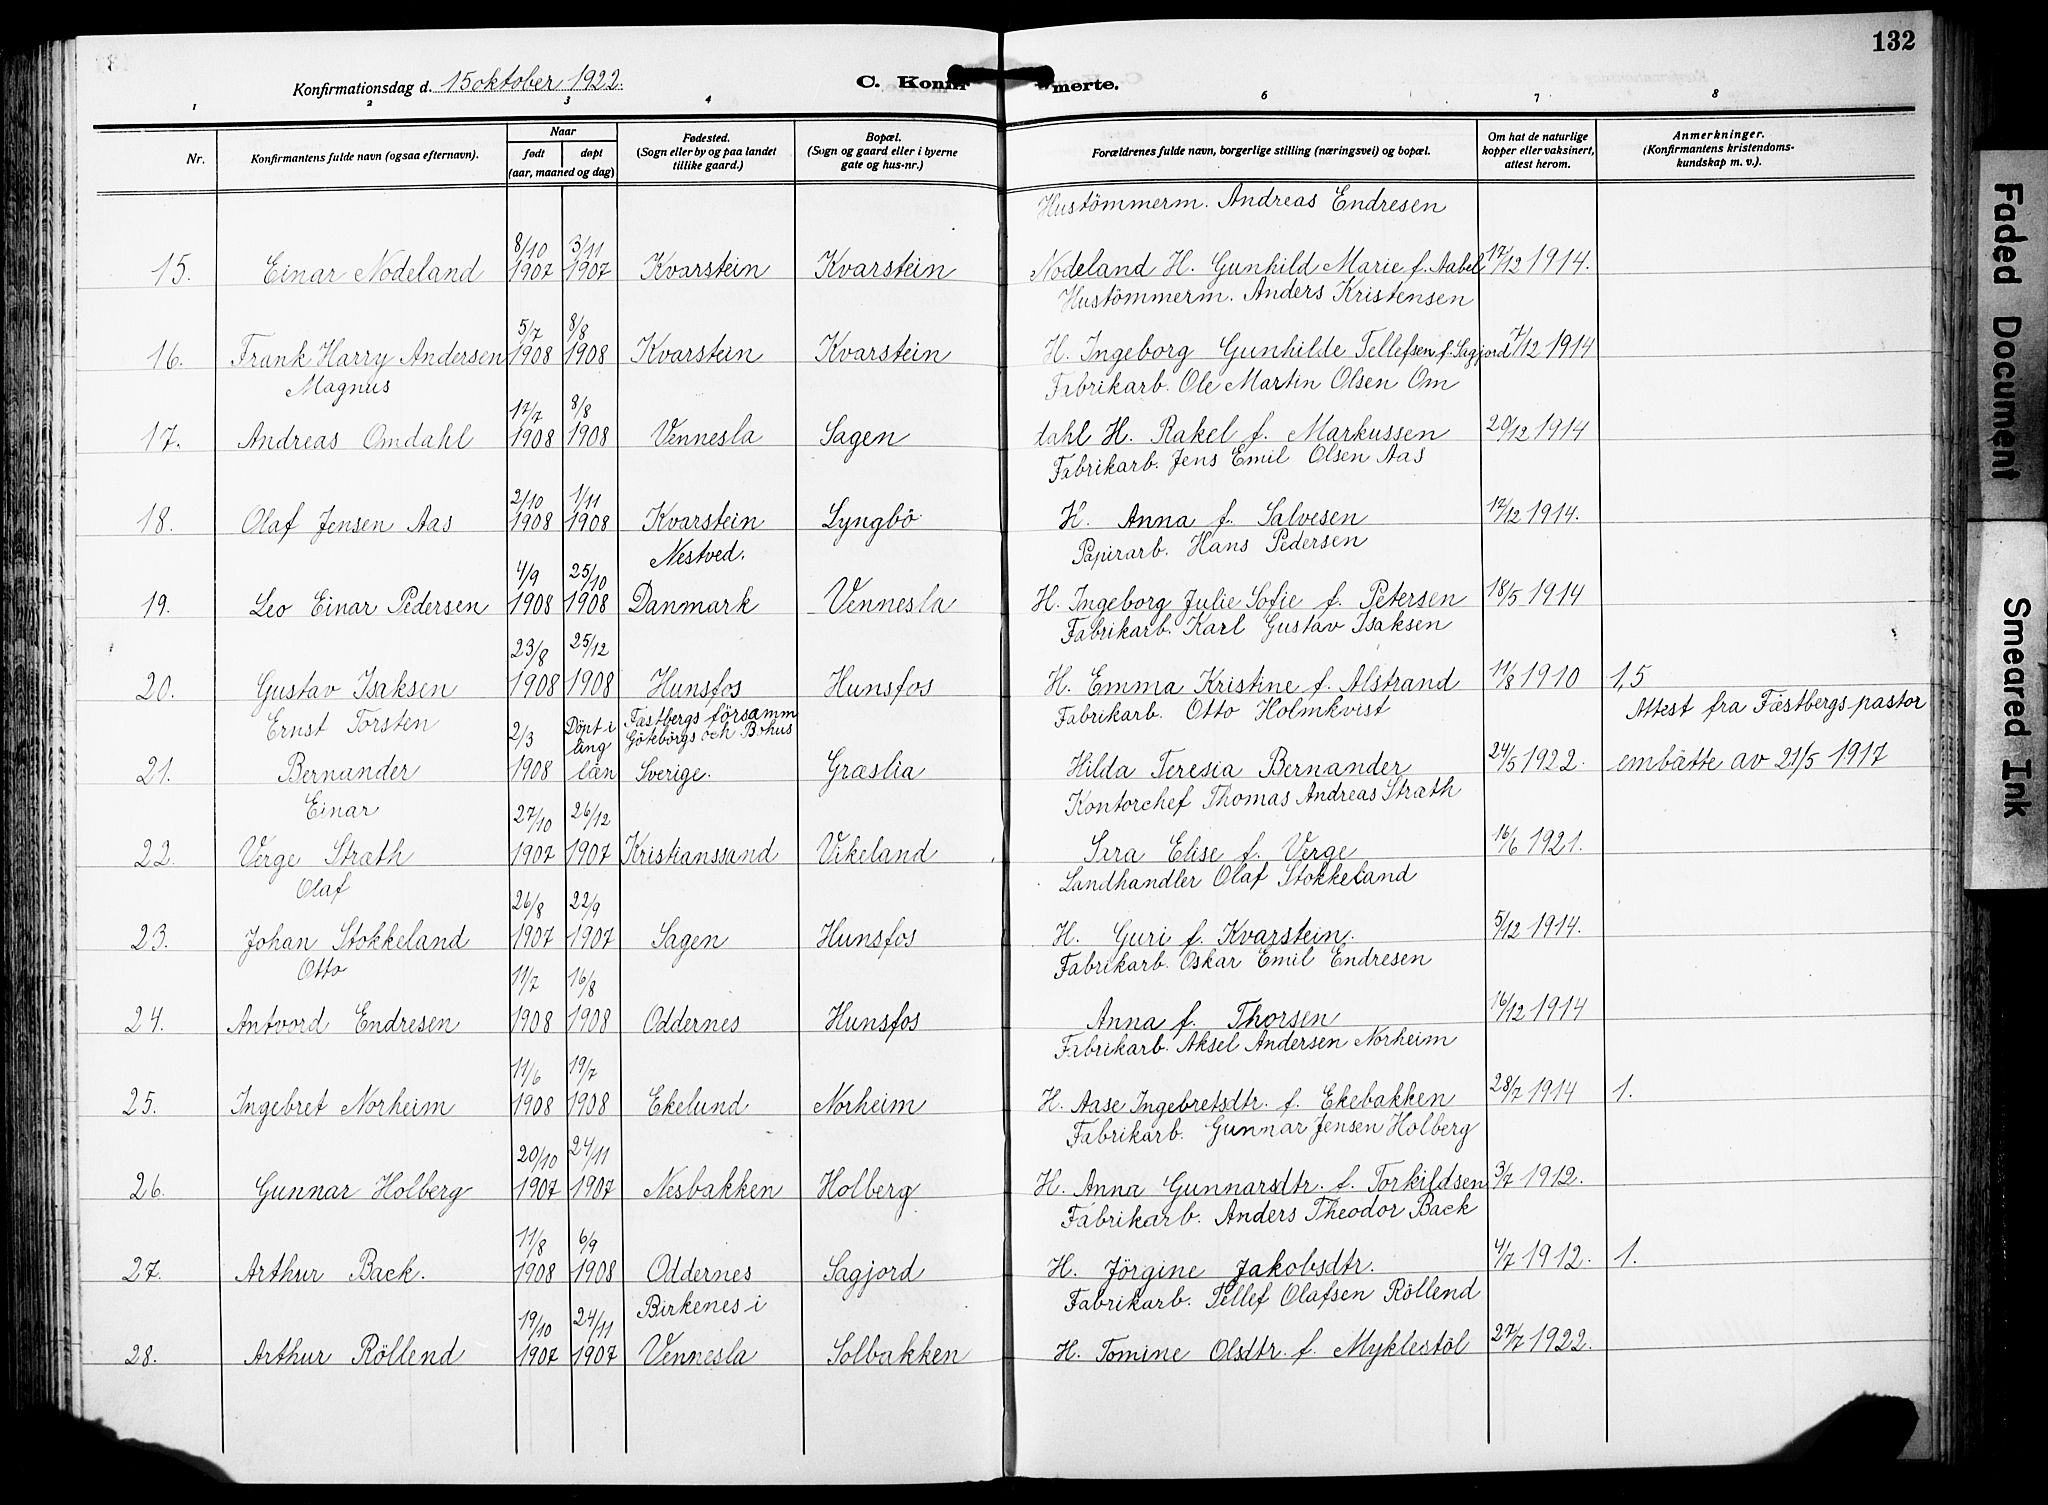 132
Konfirmationsdag d. 15 oktober 1922.
C. Konfir merte.
1 2 3 4 6 7 8
Nr.
Konfirmantens fulde navn (ogsaa efternavn).
Naar
født døpt
(aar, maaned og dag)
Fødested.
(Sogn eller by og paa landet
tillike gaard.)
Bopæl.
(Sogn og gaard eller i byerne
gate og hus-nr.)
Forældrenes fulde navn, borgerlige stilling (næringsvei) og bopæl.
Om hat de naturlige
kopper eller vaksinert,
attest herom.
Anmerkninger.
(Konfirmantens kristendoms-
kundskap m. v.).
Hustömmerm. Andreas Endresen
8/10 3/11
15. Einar Nodeland 1907 1907 Kvarstein Kvarstein Nodeland H. Gunhild Marie f. Aabel 17/12 1914.
Hustömmerm. Anders Kristensen
5/7 8/8
16. Frank Harry Andersen 1908 1908 Kvarstein Kvarstein H. Ingeborg Gunhilde Tellefsen f. Sagjord 7/12 1914
Magnus Fabrikarb. Ole Martin Olsen Om
17/7 8/8
17. Andreas Omdahl 1908 1908 Vennesla Sagen dahl H. Rakel f. Markussen 20/12 1914
Fabrikarb. Jens Emil Olsen Aas
2/10 1/11
18. Olaf Jensen Aas 1908 1908 Kvarstein Lyngbö H. Anna f. Salvesen 17/12 1914.
Nestved. Papirarb. Hans Pedersen
4/9 25/10
19. Leo Einar Pedersen 1908 1908 Danmark Vennesla H. Ingeborg Julie Sofie f. Petersen 18/5 1914
Fabrikarb. Karl Gustav Isaksen
23/8 25/12
20. Gustav Isaksen 1908 1908 Hunsfos Hunsfos H. Emma Kristine f. Alstrand 11/8 1910 1,5
Ernst Torsten 2/3 Döpt i Fastbergs församm Fabrikarb. Otto Holmkvist Attest fra Fæstbergs pastor
ling Göteborgs och Bohus
21. Bernander 1908 län Sverige. Græslia Hilda Teresia Bernander 24/5 1922. embätte av 21/5 1917
Einar 27/10 26/12 Kontorchef Thomas Andreas Stræth
22. Verge Stræth 1907 1907 Kristianssand Vikeland Sara Elise f. Verge 16/6 1921.
Olaf Landhandler Olaf Stokkeland
26/8 22/9
23. Johan Stokkeland 1907 1907 Sagen Hunsfos H. Guri f. Kvarstein. 5/12 1914.
Otto 11/7 16/8 Fabrikarb. Oskar Emil Endresen
24. Antvord Endresen 1908 1908 Oddernes Hunsfos Anna f. Thorsen 16/12 1914
Fabrikarb. Aksel Andersen Norheim
11/6 19/7
25. Ingebret Norheim 1908 1908 Ekelund Norheim H. Aase Ingebretsdtr. f. Ekebakken 28/7 1914 1.
Fabrikarb. Gunnar Jensen Holberg
20/10 24/11
26. Gunnar Holberg 1907 1907 Nesbakken Holberg H. Anna Gunnarsdtr. f. Torkildsen 3/7 1912.
Fabrikarb. Anders Theodor Back
11/8 6/9
27. Arthur Back. 1908 1908 Oddernes Sagjord H. Jörgine Jakobsdtr. 4/7 1912. 1.
Birkenes i Fabrikarb. Tellef Olafsen Röllend
19/10 24/11
28. Arthur Röllend 1907 1907 Vennesla Solbakken H. Tomine Olsdtr. f. Myklestöl 27/7 1922.
Faded Document
Smeared Ink